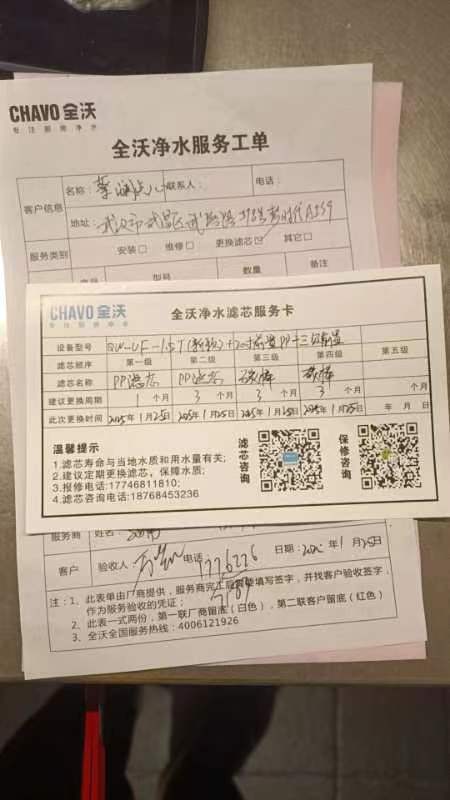 CHAVO 全沃
专注厨房净水
全沃净水服务工单
客户信息
名称: 联系人: 电话:
地址: 武汉市武昌区
服务类别 安装□ 维修□ 更换滤芯☑ 其它□
型号 数量 备注
CHAVO 全沃
专注厨房净水
全沃净水滤芯服务卡
设备型号 QW-UF-1.5T
滤芯顺序 第一级 第二级 第三级 第四级 第五级
滤芯名称 PP滤芯 PP滤芯
建议更换周期 1个月 3个月 3个月 3个月 个月
此次更换时间 2025年1月25日 2025年1月25日 2025年1月25日 2025年1月25日 年 月 日
温馨提示
1.滤芯寿命与当地水质和用水量有关;
2.建议定期更换滤芯，保障水质;
3.报修电话:17746811810;
4.滤芯咨询电话:18768453236
滤芯咨询
保修咨询
服务商 姓名:
客户 验收人 电话 日期: 年1月25日
注: 1、此表单由厂商提供，服务商完工后需要填写签字，并找客户验收签字，
作为服务验收的凭证;
2、此表一式两份，第一联厂商留底（白色），第二联客户留底（红色）
3、全沃全国服务热线: 4006121926